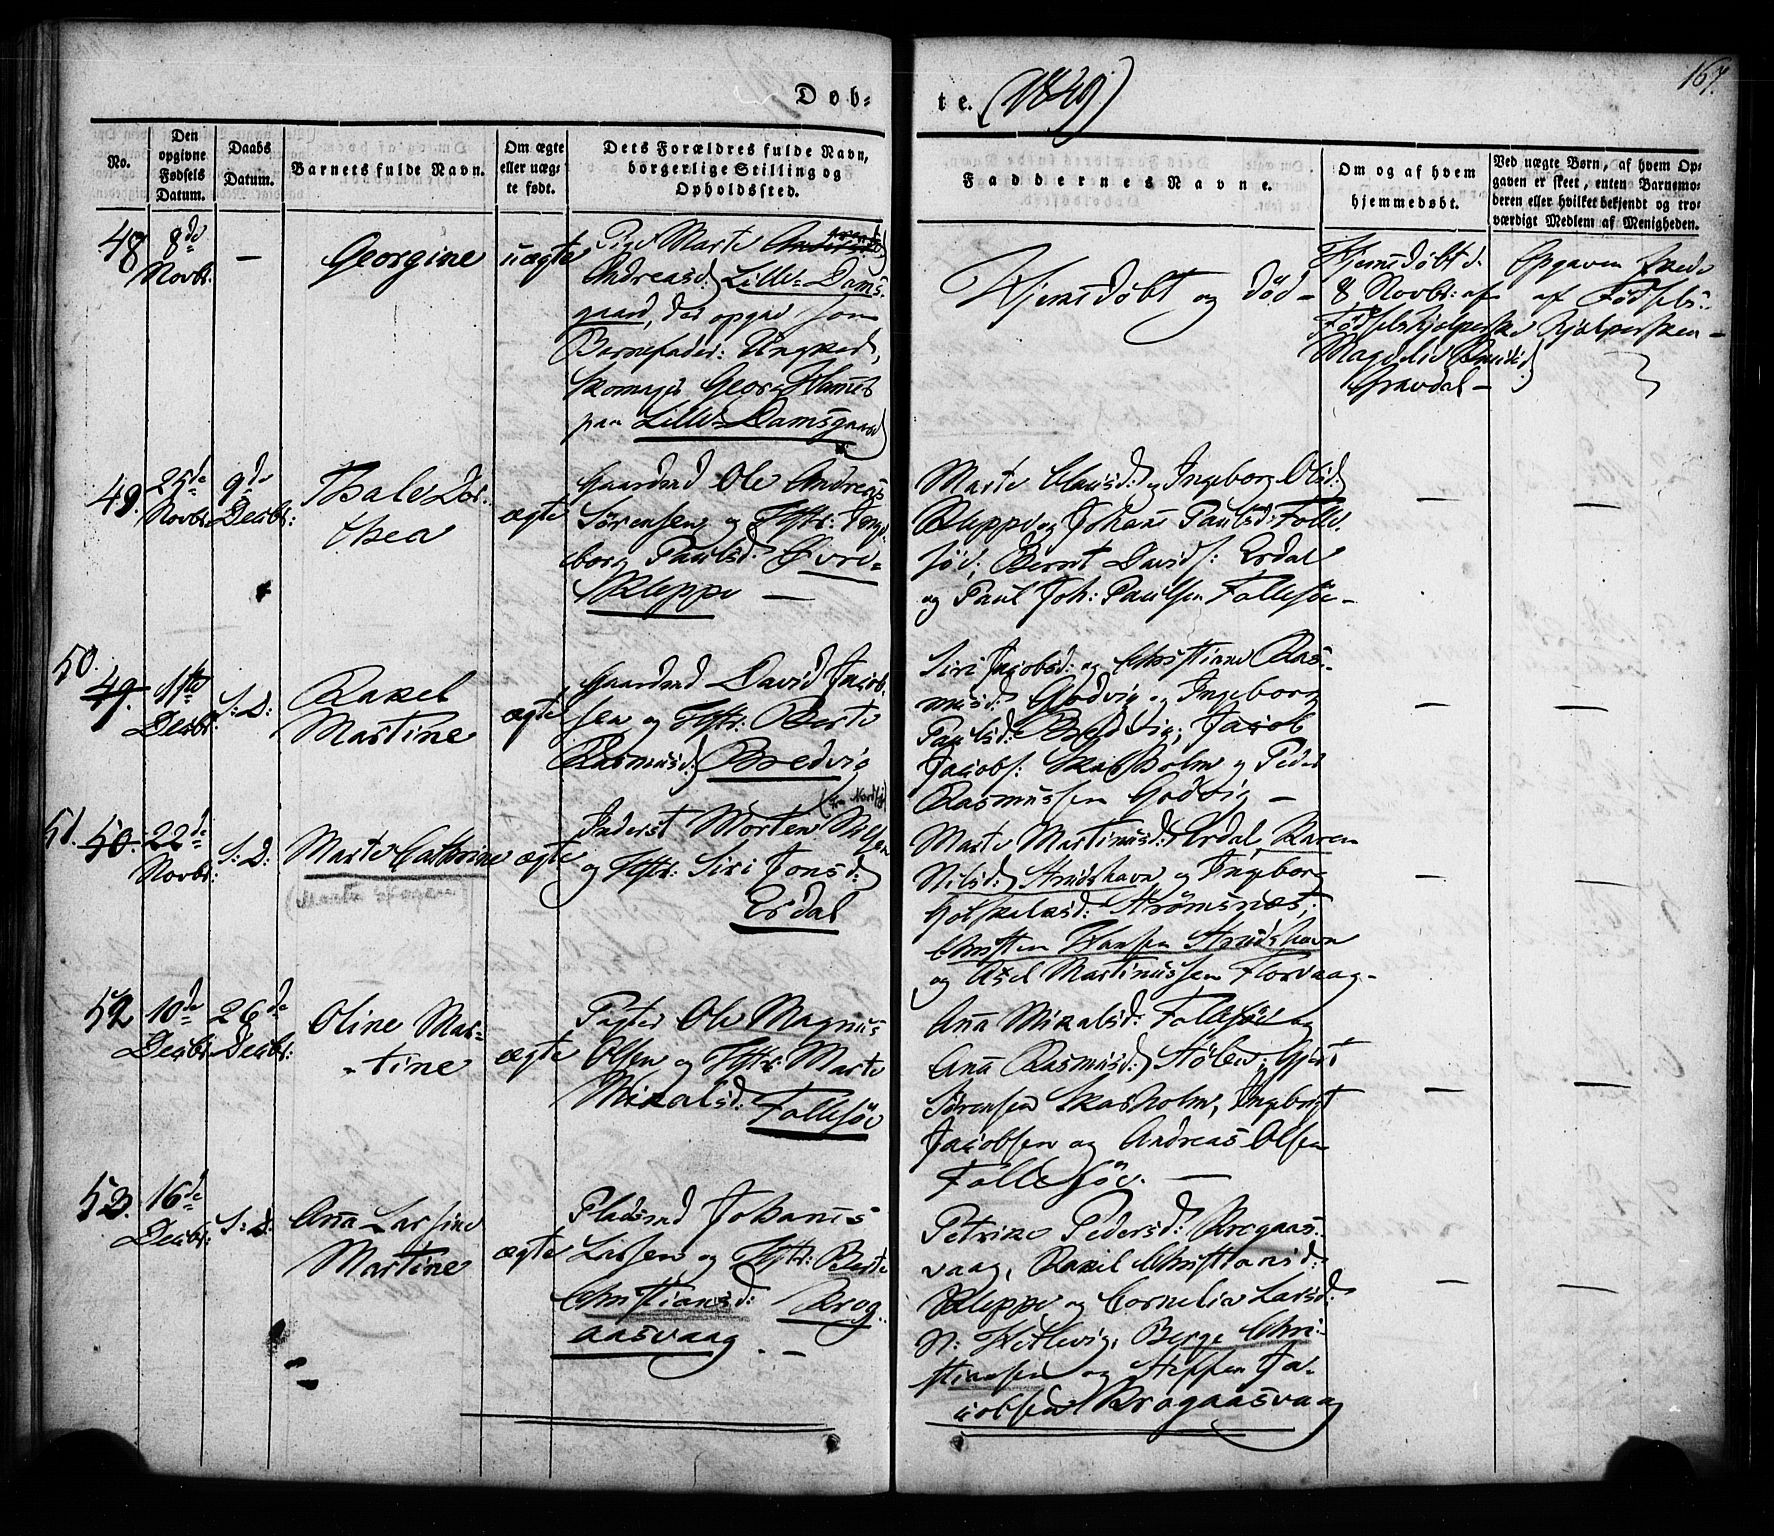 167.
Døb-te. (1849)
No.
Den opgivne Fødsels Datum.
Daabs Datum.
Barnets fulde Navn.
Om ægte eller uægte født.
Dets Forældres fulde Navn, borgerlige Stilling og Opholdssted.
Faddernes Navne.
Om og af hvem hjemmedøbt.
Ved uægte Børn, af hvem Opgaven er skeet, enten Barnemoderen eller hvilket bekjendt og troværdigt Medlem af Menigheden.
48
8de
Novbr.
–
Georgine
uægte
Pige Marte
Andreasd: Lille-Dams-
gaard, der opgav som
Barnefader: Ungkarl,
Skomager Georg
paa Lille Damsgaard
Hjemdøbt og død –
Hjemdøbt d.
8 Novbr: af
Fødselshjælperske
Gravdal –
Opgaven skede
af Fødsels-
hjælpersken –
49.
25de
Novbr.
9de
Decbr:
Thale Dor-
thea
ægte
Gaardmd Ole Andreas
Sørensen og Hstr: Inge-
borg Paulsd: Øvre-
Kleppe –
Marte Clausd: og Ingeborg Olsd:
Kleppe og Johane Paulsd: Folle-
søe; Bernt Davids: Erdal
og Paul Joh: Paulsen Follesøe –
–
–
50.
49.
1ste
Decbr.
S: D:
Raxel
Martine
ægte
Gaardmd David Jacob-
sen og Hstr: Berte
Rasmusd: Bredvig
Siri Jacobsd: og Christiane Ras-
musd: Godvig og Ingeborg
Paulsd: Bredvig; Jacob
Jacobs: Skarholm og Peder
Rasmussen Godvig –
–
–
51.
50.
22de
Novbr.
S: D:
Marte Cathrine
ægte
Inderst Morten Nilsen
og Hstr: Siri Jonsd:
Erdal
Marte Martinusd: Erdal, Karen
Nilsd: Strudshavn og Ingeborg
Strømsnæs;
Christen Hansen Strudshavn
og Axel Martinussen Florvaag –
–
–
52
10de
Decbr.
26de
Decbr:
Oline Mar-
tine
ægte
Pagter Ole Magnus
Olsen og Hstr: Marte
Mikalsd: Follesøe
Anna Mikalsd: Follesøe og
Anna Rasmusd: Stølen; Gjert
Sørensen Skarholm, Ingbrigt
Jacobsen og Andreas Olsen
Follesøe. –
–
–
53.
16de
Decbr:
S: D:
Anna Larsine
Martine
ægte
Pladsmd Johannes
Larsen og Hstr: Berte
Christiansd: Krog-
aasvaag. –
Petrike Pedersd: Krogaas-
vaag, Raxel Christiansd:
Kleppe og Cornelia Larsd:
N: Hetlevig; Berge Chri-
stiansen og Steffen Ja-
cobsen Krogaasvaag
–
–